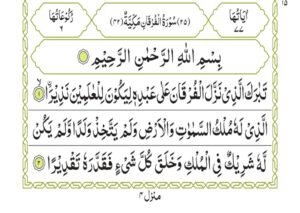 ۱۵
اٰيَاتُهَا ۷۷ (۲۵) سُوْرَةُ الْفُرْقَانِ مَكِّيَّةٌ (۴۲) رُكُوْعَاتُهَا ۶
بِسْمِ اللّٰهِ الرَّحْمٰنِ الرَّحِيْمِ
تَبٰرَكَ الَّذِيْ نَزَّلَ الْفُرْقَانَ عَلٰى عَبْدِهٖ لِيَكُوْنَ لِلْعٰلَمِيْنَ نَذِيْرًا ۙ‏﴿۱﴾
الَّذِيْ لَهٗ مُلْكُ السَّمٰوٰتِ وَالْاَرْضِ وَلَمْ يَتَّخِذْ وَلَدًا وَّلَمْ يَكُنْ
لَّهٗ شَرِيْكٌ فِي الْمُلْكِ وَخَلَقَ كُلَّ شَيْءٍ فَقَدَّرَهٗ تَقْدِيْرًا ﴿۲﴾
منزل ۴